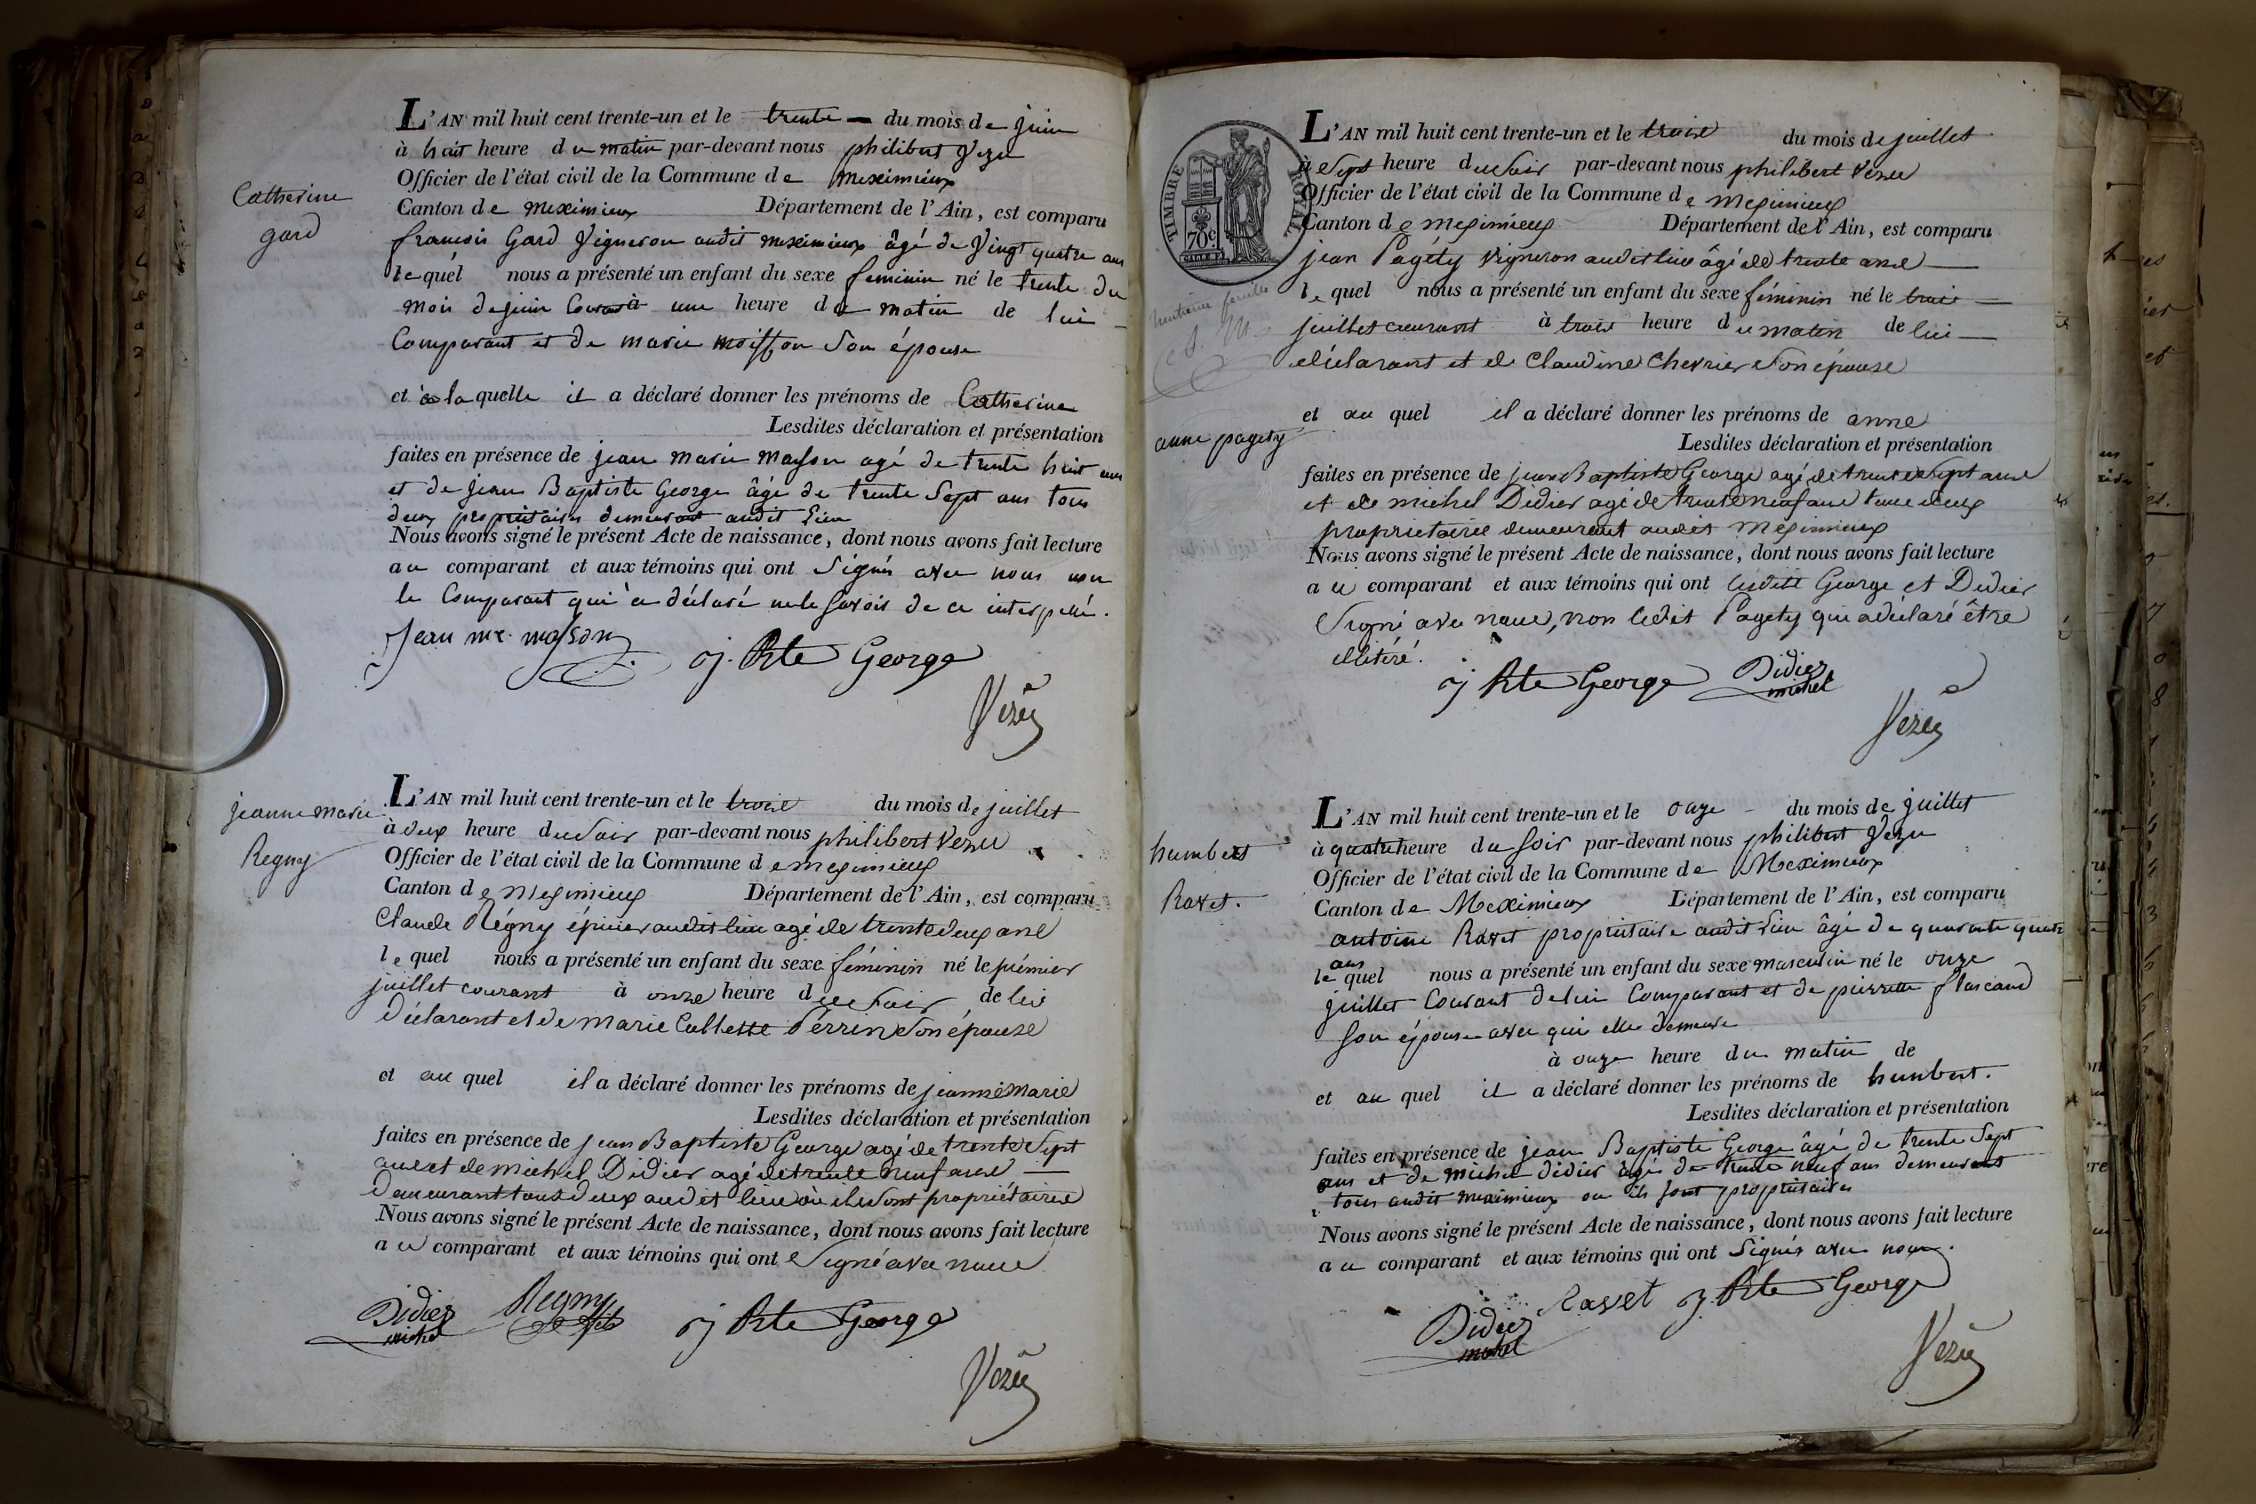 Catherine
gard
L'AN mil huit cent trente-un et le trente du mois de juin
à huit heure du matin par-devant nous philibert Vezu
Officier de l'état civil de la Commune de meximieux
Canton de meximieux Département de l'Ain, est comparu
francois Gard Vigneron audit meximieux âgé de Vingt quatre ans
lequel nous a présenté un enfant du sexe feminin né le trente du
mois de juin Courant à une heure du matin de lui
Comparant et de marie moisson Son épouse
et à laquelle il a déclaré donner les prénoms de Catherine
Lesdites déclaration et présentation
faites en présence de jean marie masson agé de trente huit ans
et de jean Baptiste George âgé de trente Sept ans tous
deux propriétaires demeurant audit Lieu
Nous avons signé le présent Acte de naissance, dont nous avons fait lecture
au comparant et aux témoins qui ont Signés avec nous non
le Comparant qui a déclaré ne le Savoir de ce interpellé.
Jean me. masson j. Bte George
Vezu
jeanne marie
Regny
L'AN mil huit cent trente-un et le trois du mois de juillet
à deux heure du Soir par-devant nous philibert Vezu
Officier de l'état civil de la Commune de meximieux
Canton de meximieux Département de l'Ain, est comparu
Claude Régny épicier audit lieu agé de trente deux ans
lequel nous a présenté un enfant du sexe féminin né le prémier
juillet courant à onze heure du Soir de lui
Déclarant et de marie Collette Perrin Son épouse
et au quel il a déclaré donner les prénoms de jeanne Marie
Lesdites déclaration et présentation
faites en présence de jean Baptiste George agé de trente Sept
ans et de michel Didier agé de trente neuf ans
Demeurant tous deux audit lieu où ils Sont propriétaires
Nous avons signé le présent Acte de naissance, dont nous avons fait lecture
au comparant et aux témoins qui ont Signé avec nous
Didier michel Regny fils j Bte George
Vezu
TIMBRE ROYAL
70c
L'AN mil huit cent trente-un et le trois du mois de juillet
à Sept heure du Soir par-devant nous philibert Vezu
Officier de l'état civil de la Commune de meximieux
Canton de meximieux Département de l'Ain, est comparu
jean Pagéty Vigneron audit lieu âgé de trente ans
lequel nous a présenté un enfant du sexe féminin né le trois
juillet courant à trois heure du matin de lui
déclarant et de Claudine Chevrier Son épouse
et au quel il a déclaré donner les prénoms de anne
anne pagety
Lesdites déclaration et présentation
faites en présence de jean Baptiste George agé de trente Sept ans
et de michel Didier agé de trente neuf ans tous deux
propriétaires demeurant audit Meximieux
Nous avons signé le présent Acte de naissance, dont nous avons fait lecture
au comparant et aux témoins qui ont Lesdits George et Didier
Signé avec nous, non ledit Pagety qui a déclaré être
illitéré.
j Bte George Didier michel
Vezu
humbert
Ravet.
L'AN mil huit cent trente-un et le onze du mois de juillet
à quatre heure du soir par-devant nous philibert Vezu
Officier de l'état civil de la Commune de Meximieux
Canton de Meximieux Département de l'Ain, est comparu
antoine Ravet propriétaire audit Lieu âgé de quarante quatre
ans
lequel nous a présenté un enfant du sexe masculin né le onze
juillet Courant de lui Comparant et de pierrette
Son épouse avec qui elle demeure
à onze heure du matin de
et au quel il a déclaré donner les prénoms de humbert.
Lesdites déclaration et présentation
faites en présence de jean Baptiste George âgé de trente Sept
ans et de michel didier agé de trente neuf ans demeurant
tous audit meximieux ou ils sont propriétaires
Nous avons signé le présent Acte de naissance, dont nous avons fait lecture
au comparant et aux témoins qui ont Signés avec nous.
Didier michel Ravet j. Bte George
Vezu